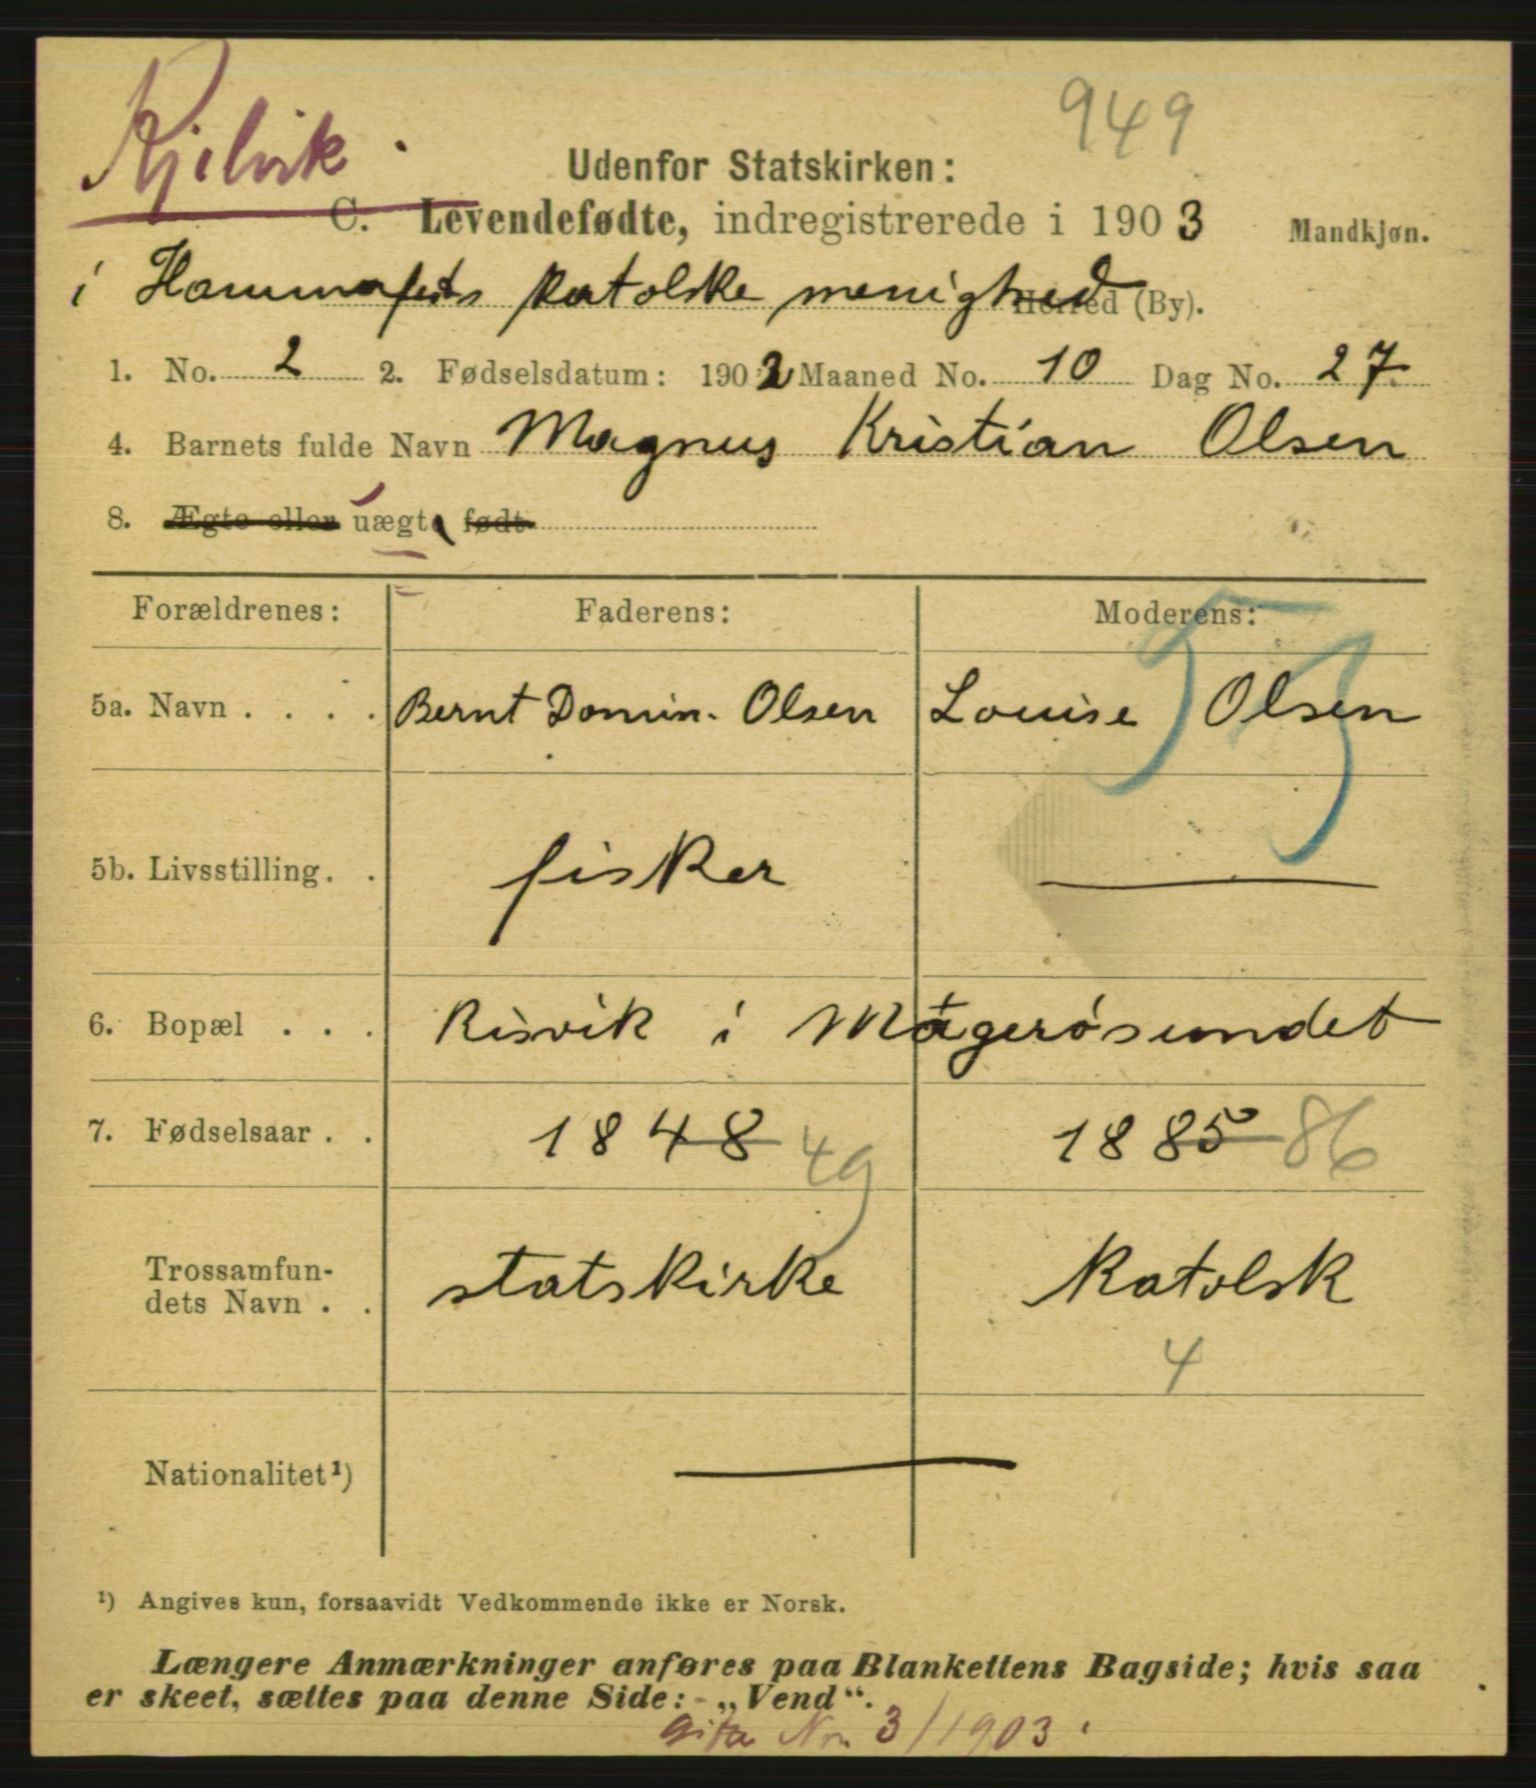 Kjelvik.
949
Udenfor Statskirken:
C. Levendefødte, indregistrerede i 1903 Mandkjøn.
i Hammerfests katolske menighed Herred (By).
1. No. 2 2. Fødselsdatum: 1902 Maaned No. 10 Dag No. 27.
4. Barnets fulde Navn Magnus Kristian Olsen
8. Ægte eller uægte født
Forældrenes: Faderens: Moderens:
55
5a. Navn . . . . Bernt Domin. Olsen Louise Olsen
5b. Livsstilling. . fisker —
6. Bopæl . . . Risvik i Mågerösundet
7. Fødselsaar . . 1848 49 1885 86
Trossamfun-
dets Navn . . statskirke Katolsk
4
Nationalitet¹) —
¹) Angives kun, forsaavidt Vedkommende ikke er Norsk.
Længere Anmærkninger anføres paa Blankettens Bagside; hvis saa
er skeet, sættes paa denne Side: - „Vend“.
No. 3/1903.